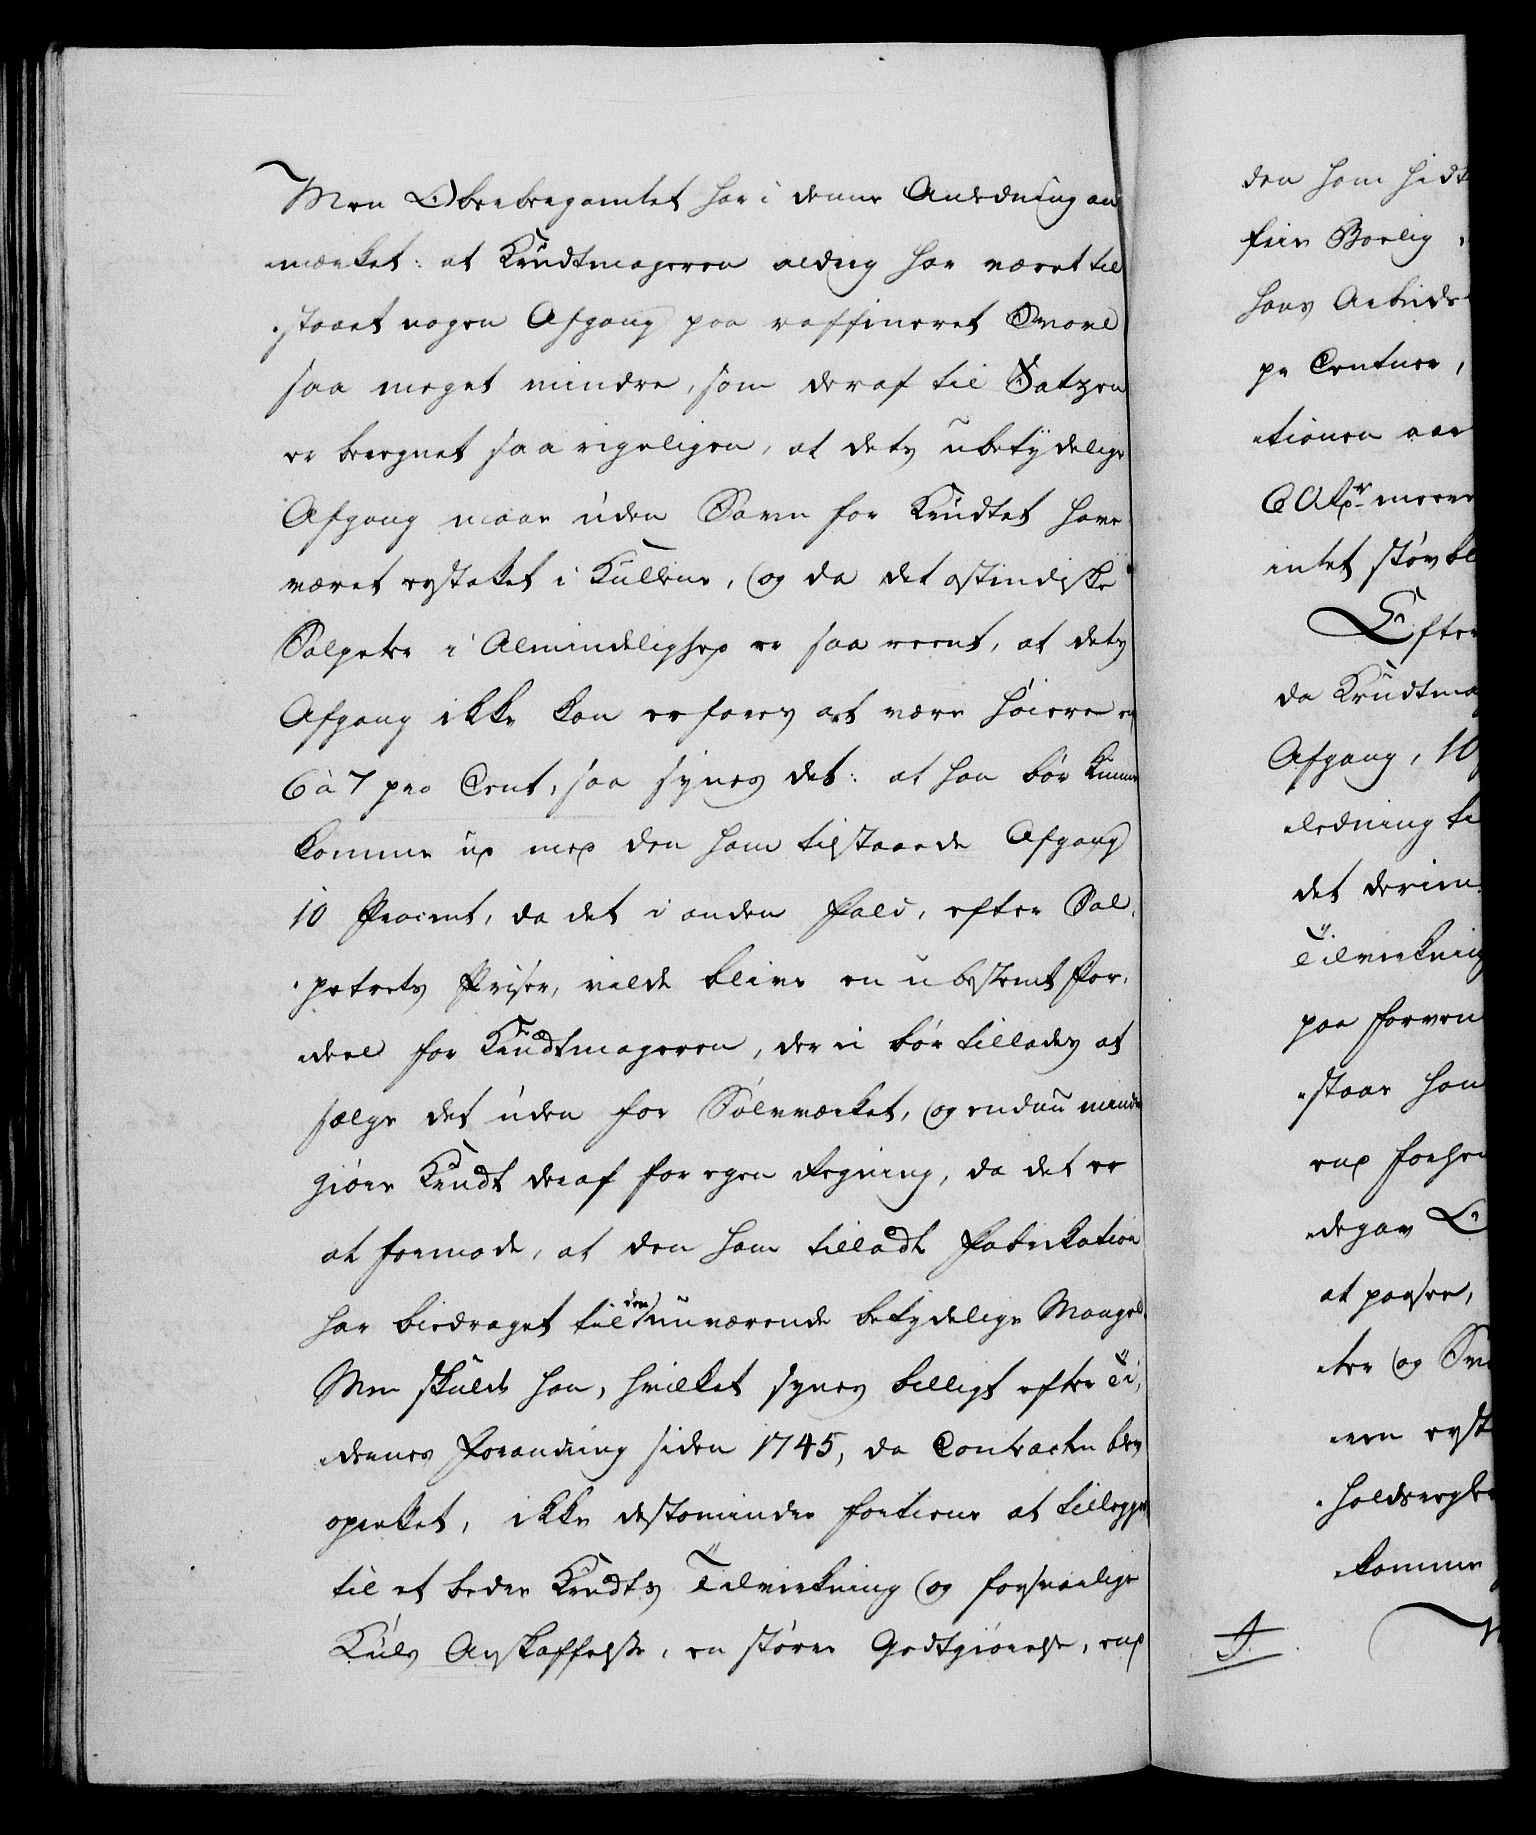 Men Oberbergamtet har i denne Anledning an
mærket: at Krudtmageren aldrig har været til
staaet nogen Afgang paa raffineret Svovl
saa meget mindre, som deraf til Satzen
er beregnet saa rigeligen, at dets ubetydelige
Afgang maae uden Savn for Krudtet have
været erstattet i Kullene, og da det ostindiske
Salpeter i Almindelighed er saa reent, at dets
Afgang ikke kan erfares at være høiere end
6 à 7 pro Cent, saa synes det: at han bør kunne
komme ud med den ham tilstaaede Afgang
10 Procent, da det i anden Fald, efter Sal,
petrets Priser, vilde blive en ubestemt For,
deel for Krudtmageren, der ei bør tillades at
sælge det uden for Sølvværket, og endnu mindre
giøre Krudt deraf for egen Regning, da det er
at formode, at den ham tilladte Fabrikation
har bidraget til den nuværende betydelige Mangel.
Men skulde han, hvilket synes billigt efter Ti,
dernes Forandring siden 1745, da Contracten blev
oprettet, ikke destomindre fortiene at tillegges
til et bedre Krudts Tilvirkning og forsvarlige
Kuls Anskaffelse, en større Godtgiørelse, end
den ham hidt
frie Bolig
hans Arbeids
pr Centner,
ationen aar
6 Rdr meere
intet støvbl
Efter
da Krudtma
Afgang, 10
ledning ti
det derim
Tilvirkning
paa forven
staae ham
end forhen
degav O
at passe,
ter og Sv
nen erst
holdsregler
komme